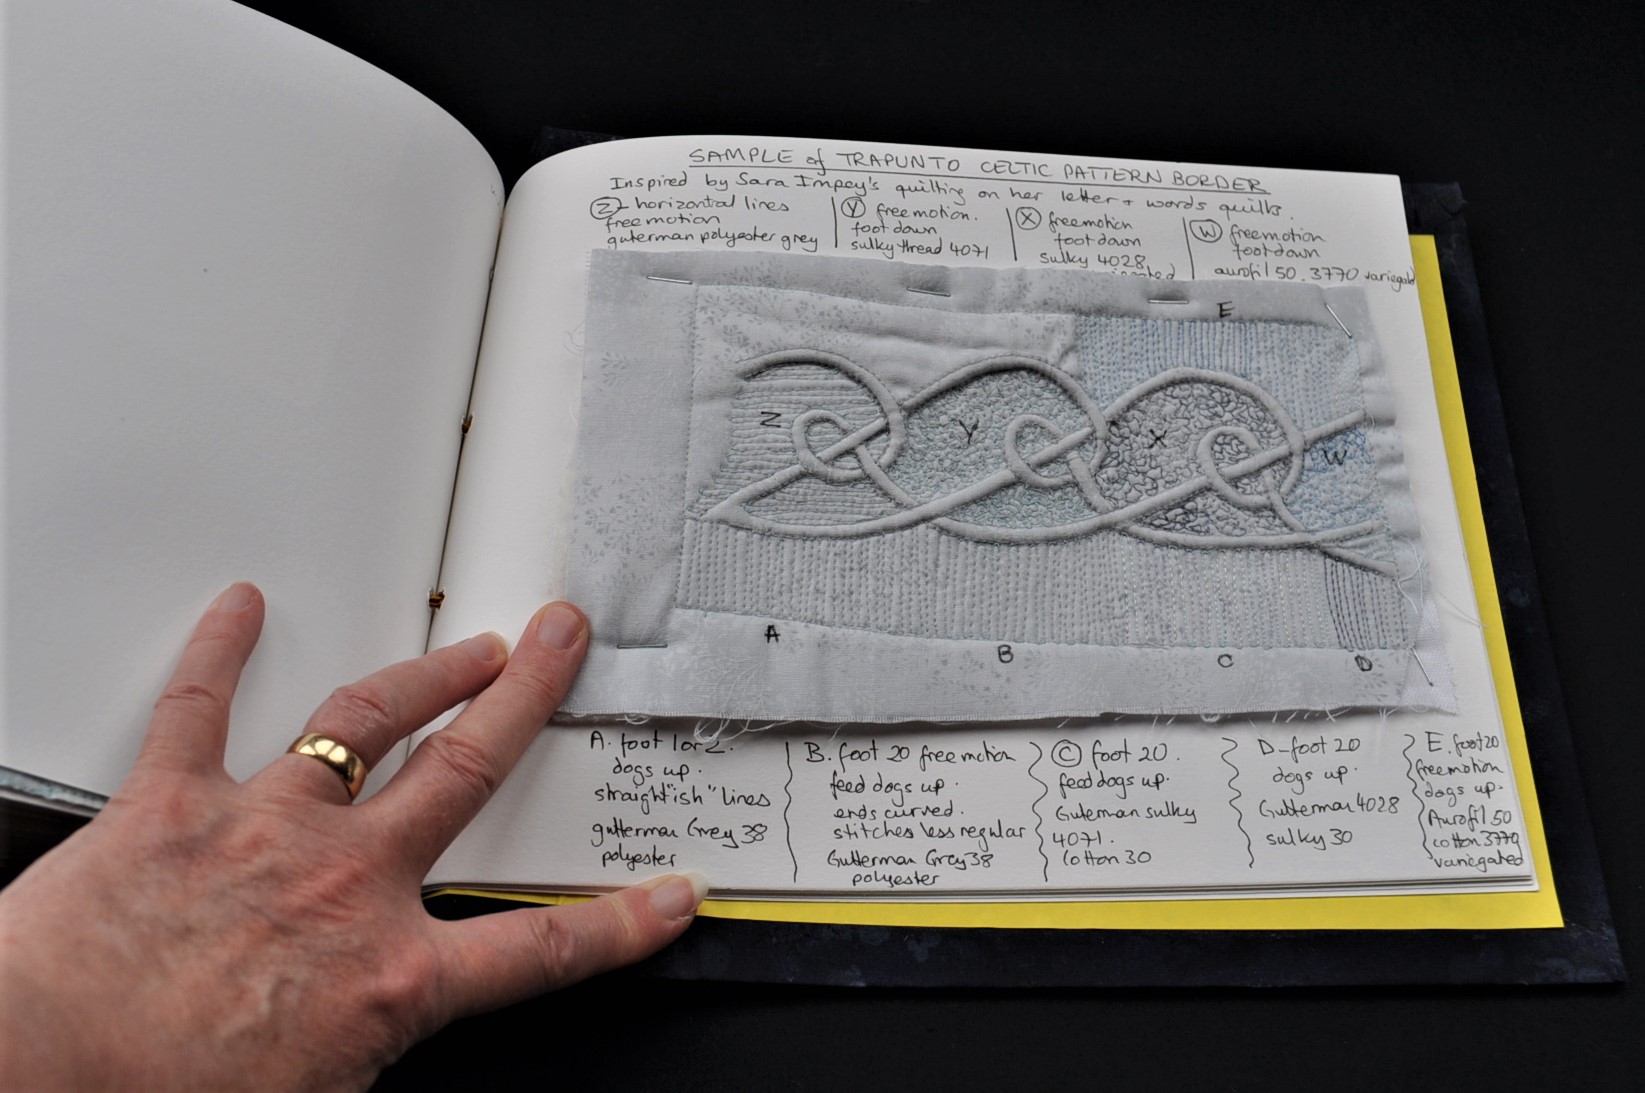 SAMPLE of TRAPUNTO CELTIC PATTERN BORDER
Inspired by Sara Impey's quilting on her letter + words quilts.
Z - horizontal lines
freemotion
guterman polyester grey
Y freemotion.
foot down
sulky thread 4071
X freemotion
foot down
sulky 4028
W freemotion
foot down
aurofil 50. 3770 variegated
E
Z
Y
X
W
A
B
C
D
A. foot 1 or 2.
dogs up.
straight"ish" lines
gutterman Grey 38
polyester
B. foot 20 free motion
feed dogs up.
ends curved.
stitches less regular
Gutterman Grey 38
polyester
C foot 20.
feed dogs up.
Guteman sulky
4071.
Cotton 30
D - foot 20
dogs up.
Gutterman 4028
sulky 30
E. foot 20
freemotion
dogs up.
Aurofil 50
cotton 3770
variegated